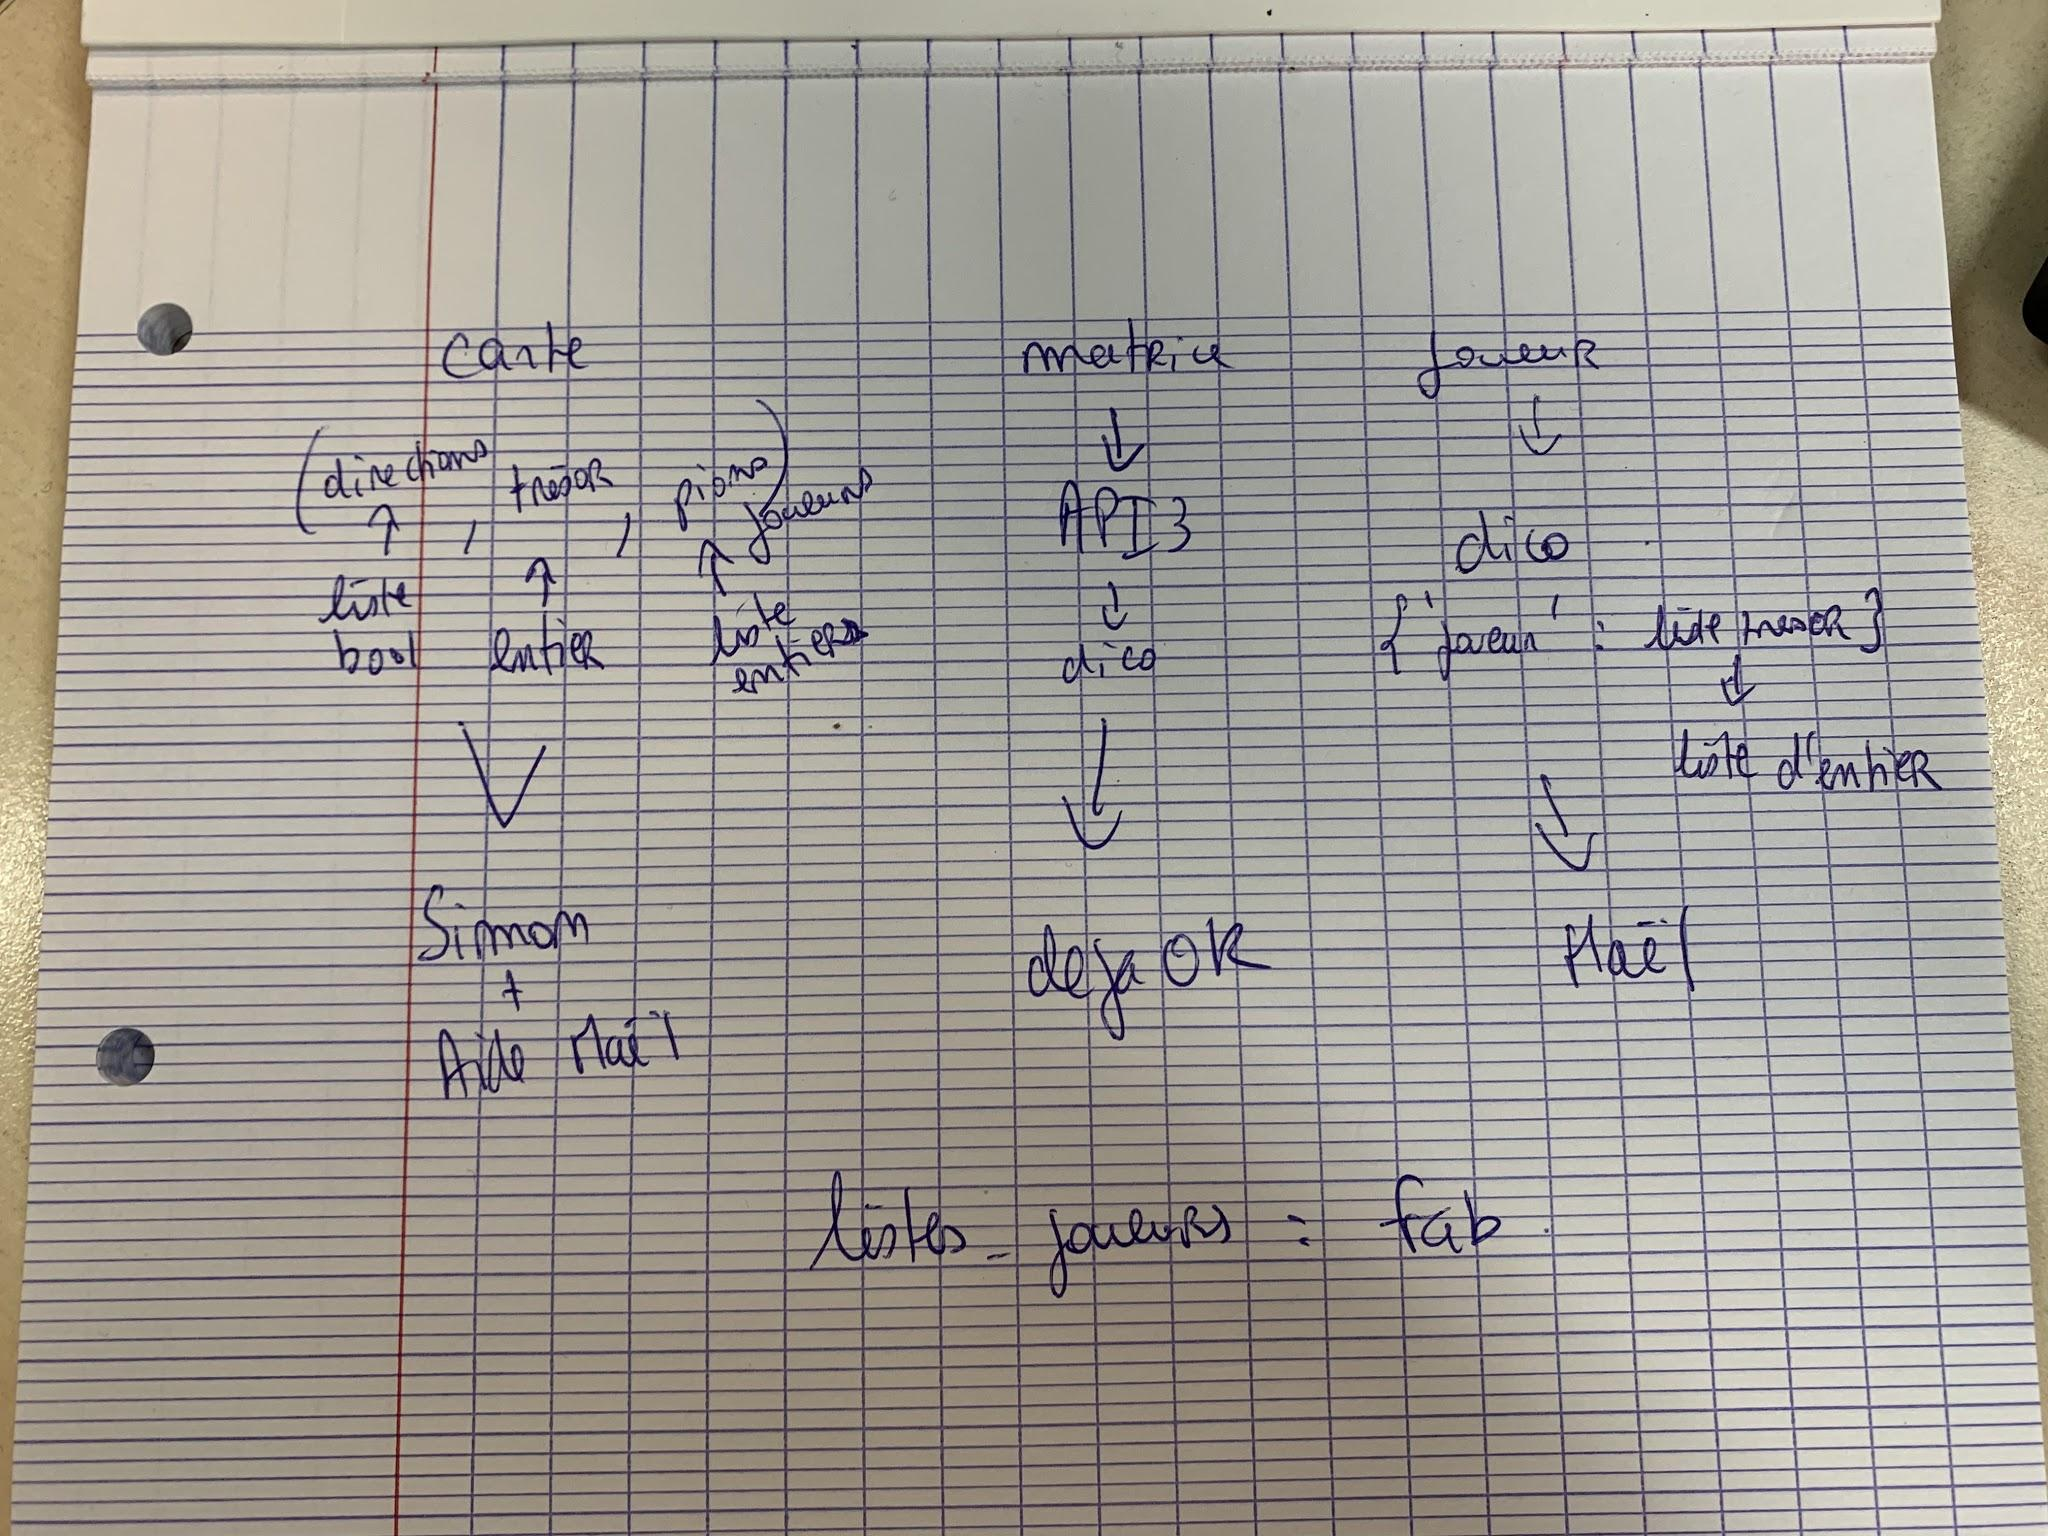 carte
(directions, trésor, pions joueurs)
↑ ↑ ↑
liste bool
entier
liste entiers
Simon
+
Aide Maël
matrice
↓
API3
↓
dico
↓
deja OK
joueur
↓
dico
{'joueur' : liste tresor}
↓
liste d'entier
↓
Maël
listes_joueurs : fab.